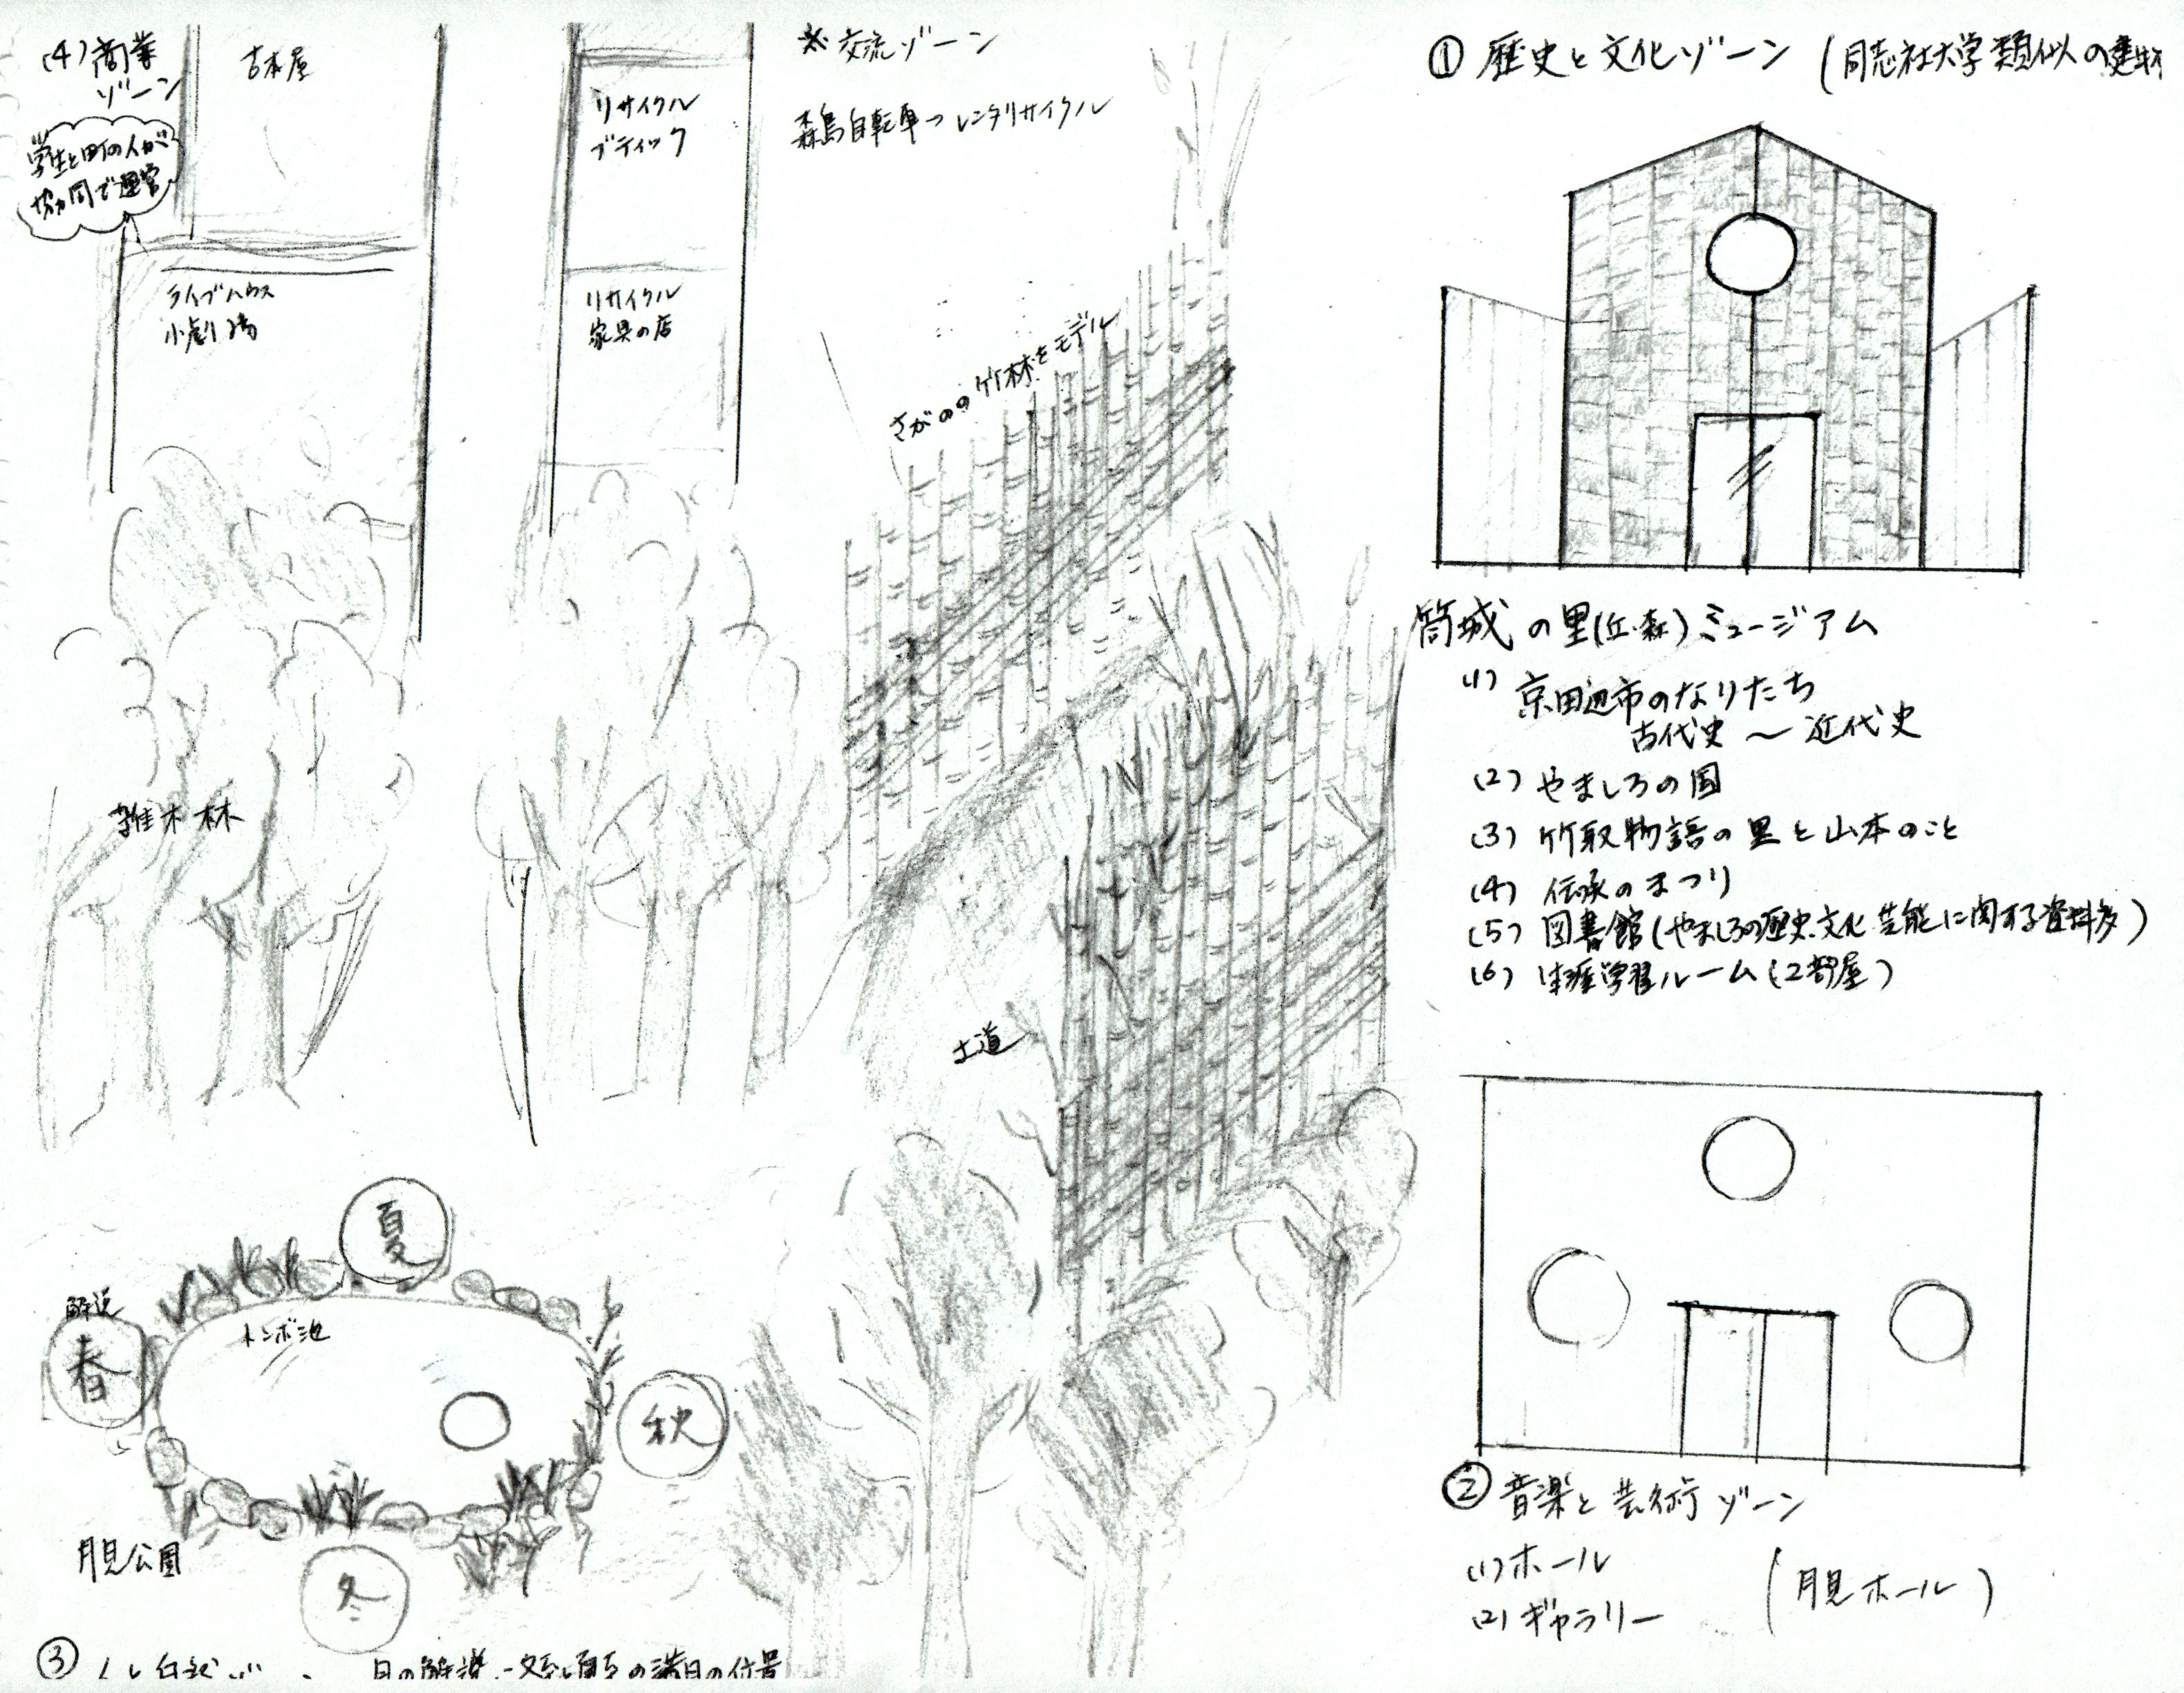 (4) 商業
ゾーン
古本屋
学生と町の人が
協同で運営
ライブハウス
小劇場
リサイクル
ブティック
リサイクル
家具の店
※ 交流ゾーン
森島自転車→レンタリサイクル
さがのの竹林をモデル
雑木林
土道
夏
解説
春
トンボ池
秋
月見公園
冬
③
① 歴史と文化ゾーン (同志社大学類似の建物
筒城の里(丘・森)ミュージアム
(1) 京田辺市のなりたち
古代史 〜 近代史
(2) やましろの国
(3) 竹取物語の里と山本のこと
(4) 伝承のまつり
(5) 図書館(やましろの歴史、文化、芸能に関する資料多)
(6) 生涯学習ルーム(2部屋)
② 音楽と芸術ゾーン
(1) ホール
(2) ギャラリー
(月見ホール)